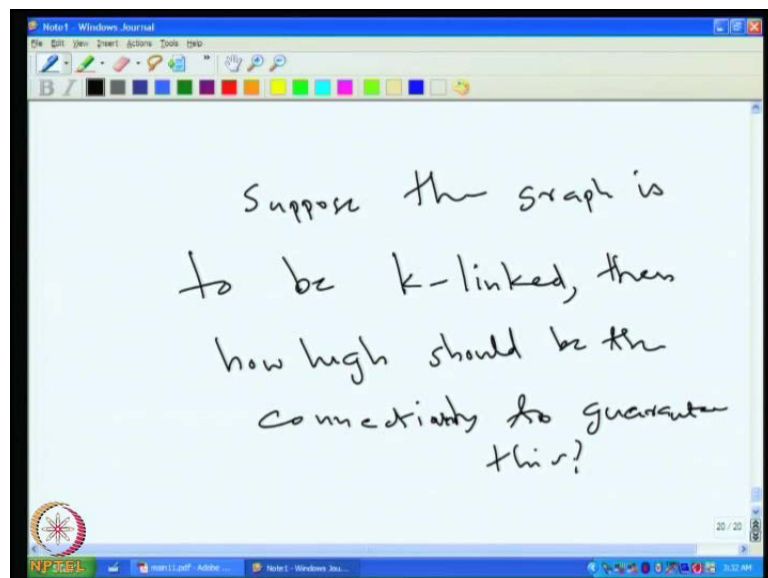 Note1 - Windows Journal
File Edit View Insert Actions Tools Help
B I
Suppose the graph is
to be k-linked, then
how high should be the
connectivity to guarantee
this?
20 / 20
NPTEL
main11.pdf - Adobe ...
Note1 - Windows Jou...
3:32 AM